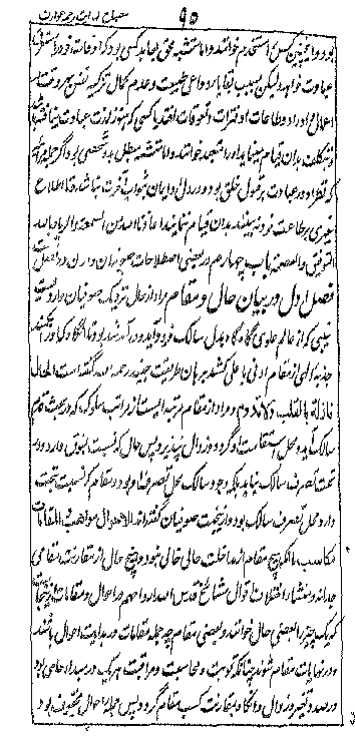 مصباح الهدایت ترجمه عوارف
۹۵
بود و اینچنین کس را متخدم خوانند و اما متشبه محق بعابد کسی بود که اوقات خود را مستغرق
عبادت خواهد ولیکن بسبب بقایا دواعی طبیعت و عدم کمال تزکیه نفس بهر وقت
اعمال و اوراد و طاعات او فترات و تعویقات افتد یا کسی که هنوز لذت عبادت نیافته باشد
و بتکلف بدان قیام مینماید او را متعبد خوانند و اما متشبه مبطل بدو شخصی بود از جمله مرائیه
که نظر او در عبادت بر قبول خلق بود و در دل او ایمان بثواب آخرت نباشد و تا اطلاع
غیری بر طاعت خود نبیند بدان قیام ننماید اعاذنا الله من السمعة و الریا و بالله
التوفیق و العصمة باب چهارم در بعضی اصطلاحات صوفیان و ان ده فصل است
فصل اول در بیان حال و مقام مراد از حال نزدیک صوفیان واردیست
غیبی که از عالم علوی گاه گاه بدل سالک فرود آید و در آمد شد بود تا آنگاه که او را بکمند
جذبه الهی از مقام ادنی باعلی کشد برهان طریقت جنید رحمه الله گفته است الحال
نازلة بالقلب و لا تدوم و مراد از مقام مرتبه ایست از مراتب سلوک که در تحت قدم
سالک آید و محل استقامت او گردد و زوال نپذیرد پس حال که نسبت بفوق دارد در
تحت تصرف سالک نیاید بلکه وجود سالک محل تصرف او بود و مقام که نسبت بتحت
دارد محل تصرف سالک بود و ازینجهت صوفیان گفته‌اند الاحوال مواهب و المقامات
مکاسب با آنکه هیچ مقام از مداخلت حالی خالی نبود و هیچ حال از مقارنت مقامی
جدا نه و منشاء اختلاف اقوال مشائخ قدس الله ارواحهم در احوال و مقامات ازینجاست
که یک چیز را بعضی حال خوانند و بعضی مقام چه جمله مقامات در بدایت احوال باشند
و در نهایات مقام شوند چنانکه توبت و محاسبت و مراقبت هر یک در مبدا حالی بود
در صدد تغیر و زوال و آنگاه بمقارنت کسب مقام گردد پس جمله احوال محفوف بود